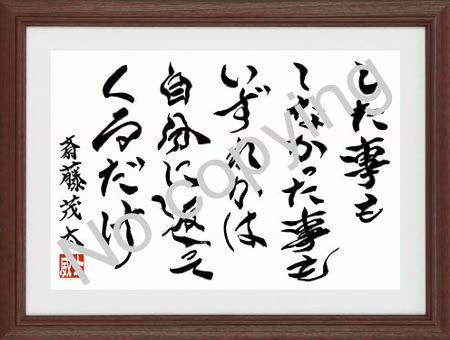 した事も
しなかった事も
いずれかは
自分に返って
くるだけ
斎藤茂太
No copying